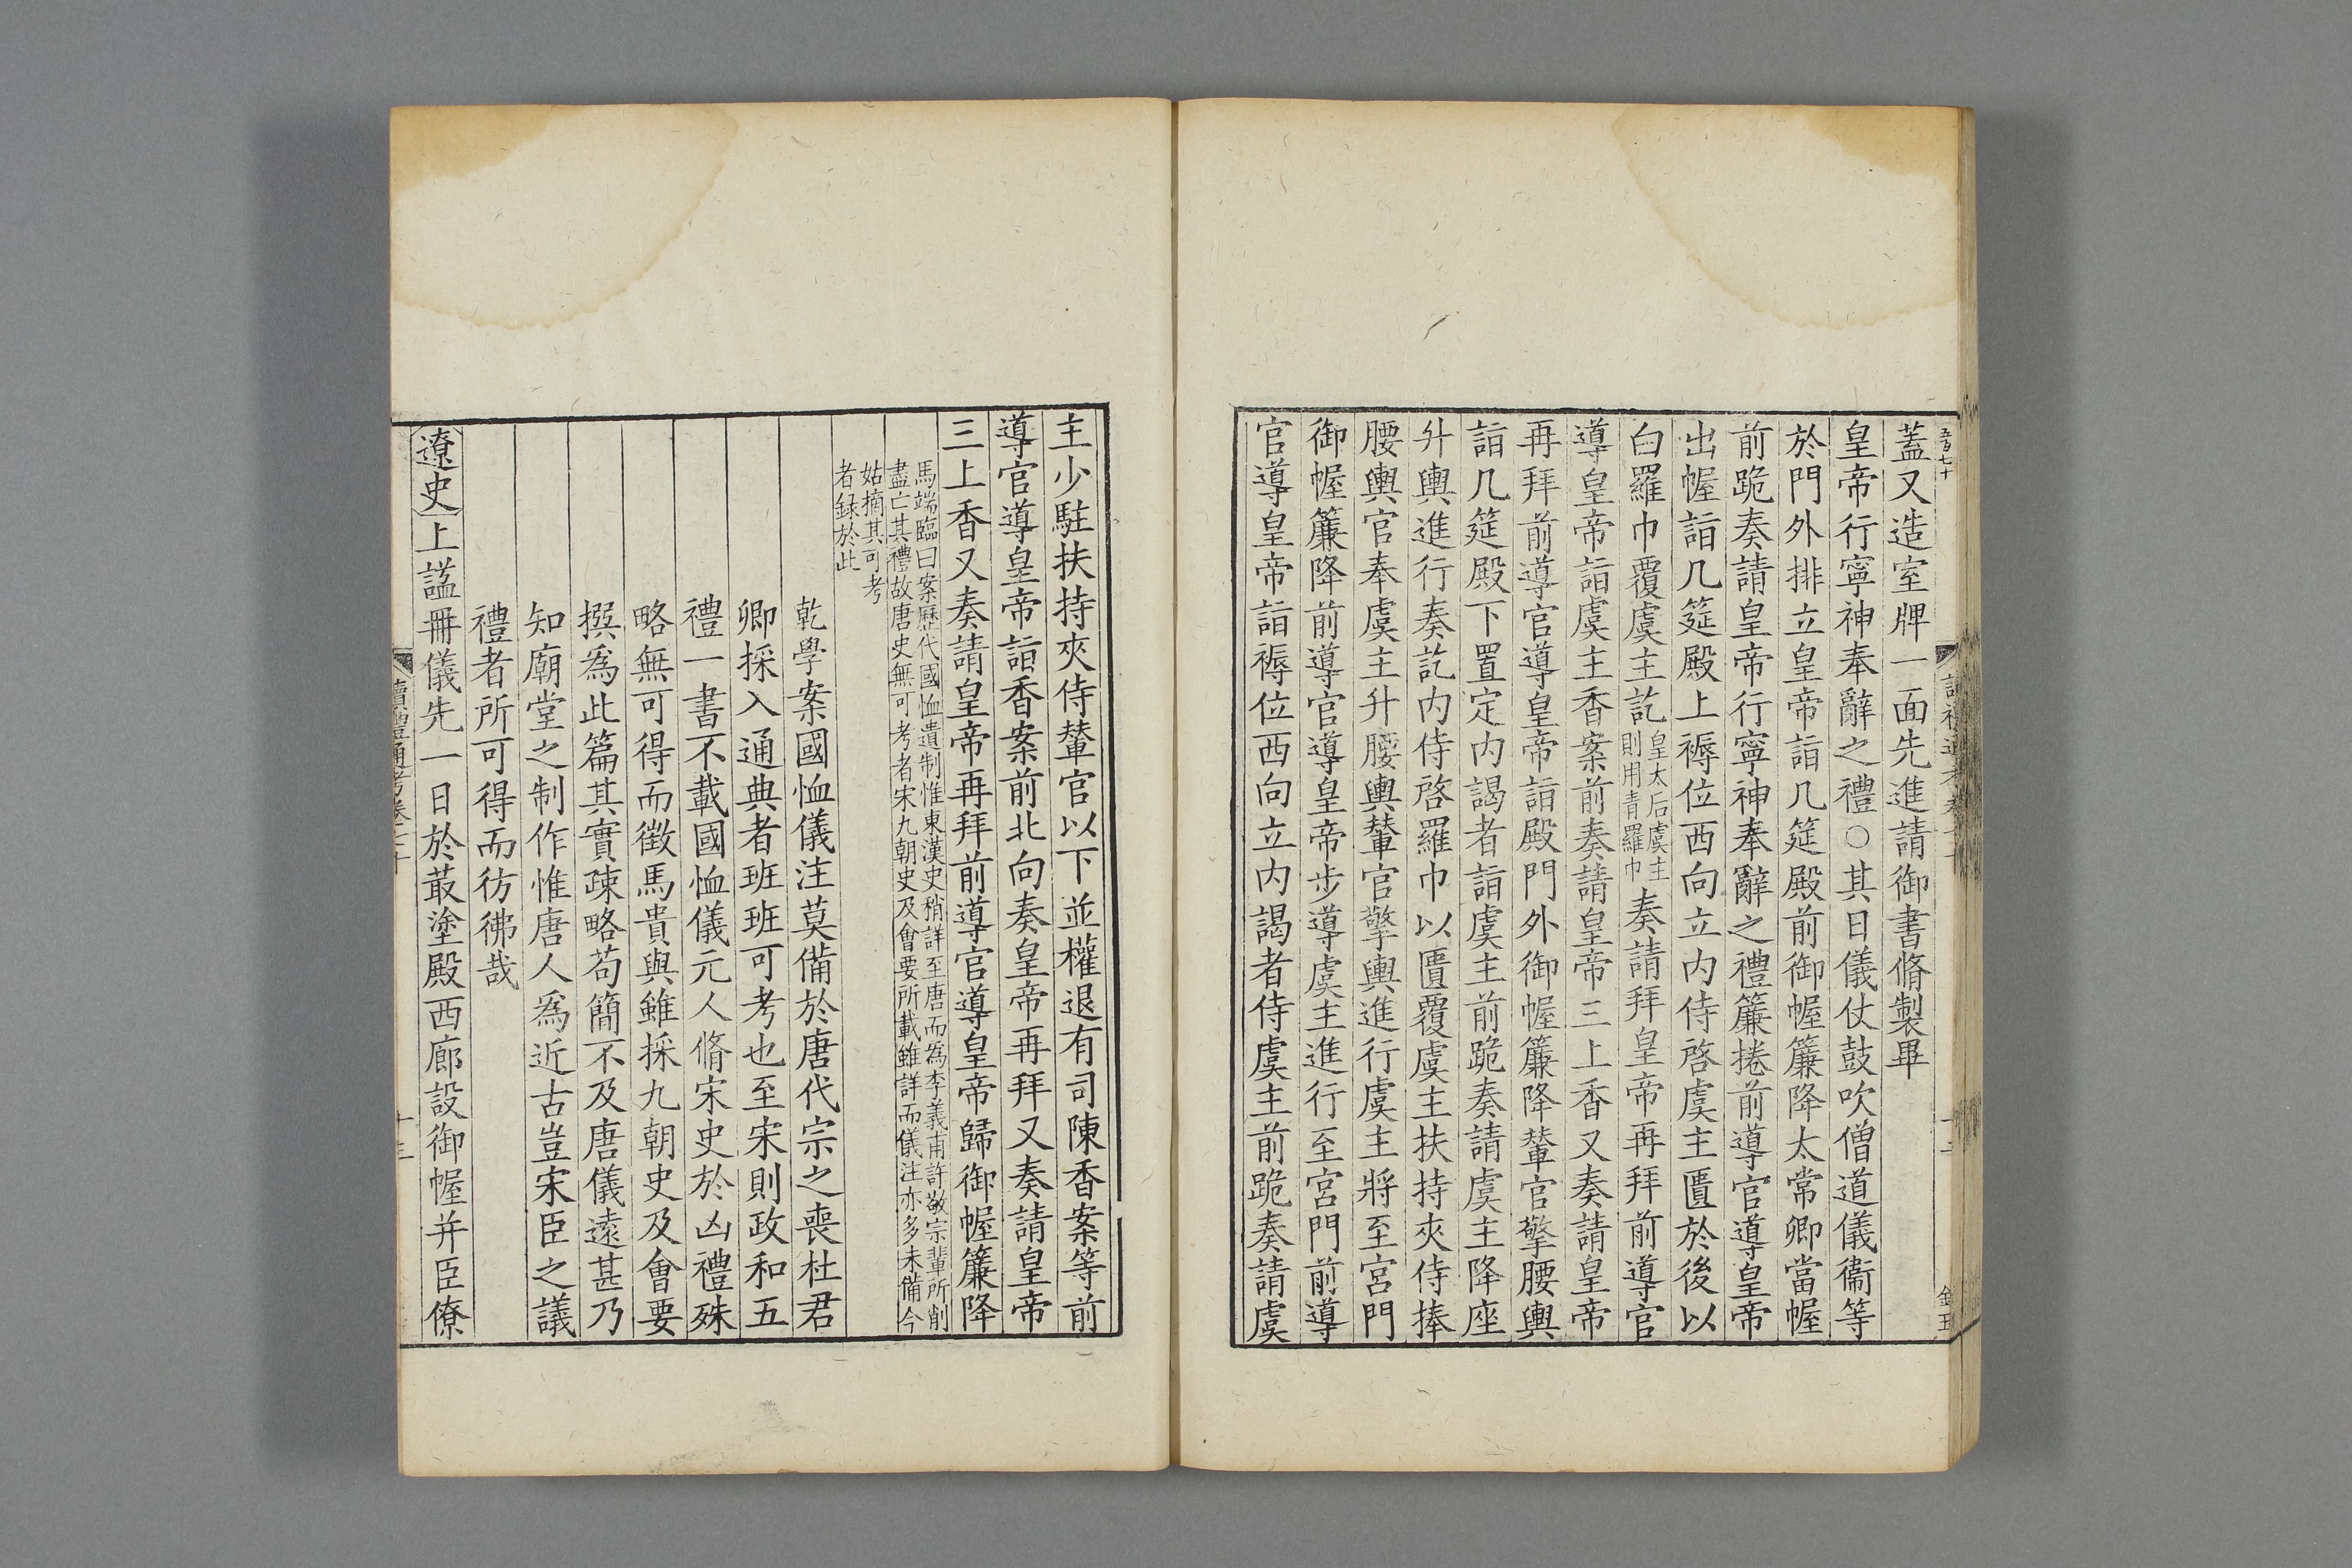 蓋又造室牌一面先進請御書脩製畢
皇帝行寧神奉辭之禮○其日儀仗鼓吹僧道儀衞等
於門外排立皇帝詣几筵殿前御幄簾降太常卿當幄
前跪奏請皇帝行寧神奉辭之禮簾捲前導官導皇帝
出幄詣几筵殿上褥位西向立内侍啓虞主匱於後以
白羅巾覆虞主訖皇太后虞主則用青羅巾奏請拜皇帝再拜前導官
導皇帝詣虞主香案前奏請皇帝三上香又奏請皇帝
再拜前導官導皇帝詣殿門外御幄簾降輦官擎腰輿
詣几筵殿下置定内謁者詣虞主前跪奏請虞主降座
升輿進行奏訖内侍啓羅巾以匱覆虞主扶持夾侍捧
腰輿官奉虞主升腰輿輦官擎輿進行虞主將至宮門
御幄簾降前導官導皇帝步導虞主進行至宮門前導
官導皇帝詣褥位西向立内謁者侍虞主前跪奏請虞
主少駐扶持夾侍輦官以下並權退有司陳香案等前
導官導皇帝詣香案前北向奏皇帝再拜又奏請皇帝
三上香又奏請皇帝再拜前導官導皇帝歸御幄簾降
馬端臨曰案歷代國恤遺制惟東漢史稍詳至唐而爲李義甫許敬宗輩所削
盡亡其禮故唐史無可考者宋九朝史及會要所載雖詳而儀注亦多未備今
姑摘其可考
者録於此
乾學案國恤儀注莫備於唐代宗之喪杜君
卿採入通典者班班可考也至宋則政和五
禮一書不載國恤儀元人脩宋史於凶禮殊
略無可得而徵馬貴與雖採九朝史及會要
撰爲此篇其實疎略苟簡不及唐儀遠甚乃
知廟堂之制作惟唐人爲近古豈宋臣之議
禮者所可得而彷彿哉
遼史上謚冊儀先一日於菆塗殿西廊設御幄并臣僚
讀禮通考卷二十